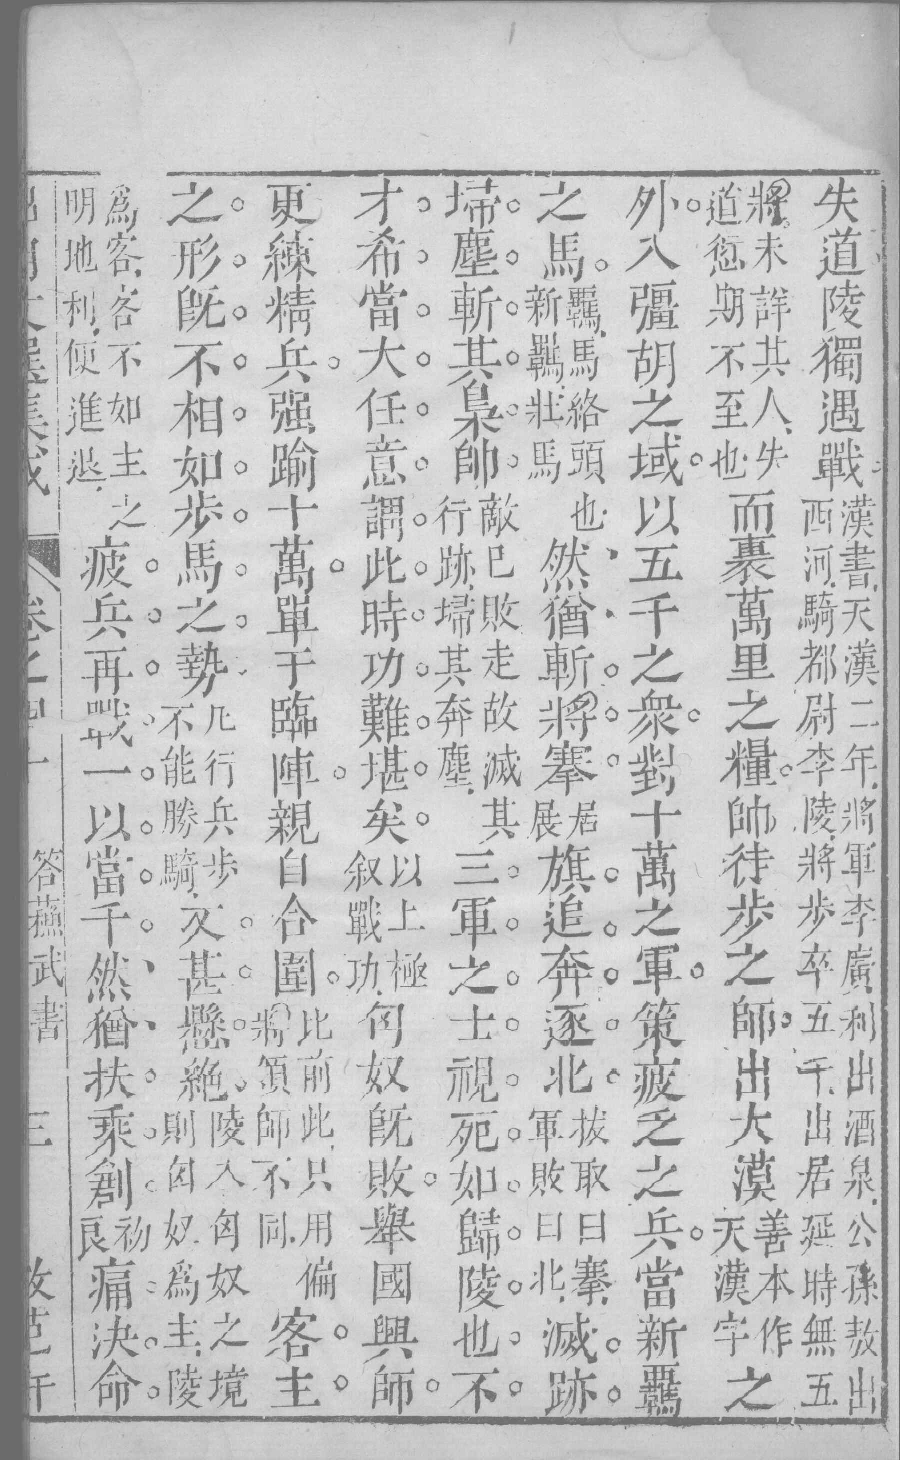 失道陵獨遇戰漢書天漢二年將軍李廣利出酒泉公孫敖出西河騎都尉李陵將步卒五千出居延時無五
將未詳其人失道愆期不至也而裹萬里之糧帥徒步之師出大漠善本作天漢字之
外入彊胡之域以五千之衆對十萬之軍策疲乏之兵當新羈
之馬羈馬絡頭也新羈壯馬然猶斬將搴居展旗追奔逐北拔取曰搴軍敗曰北滅跡
埽塵斬其梟帥敵已敗走故滅其行跡埽其奔塵三軍之士視死如歸陵也不
才希當大任意謂此時功難堪矣以上極叙戰功匈奴旣敗舉國興師
更練精兵强踰十萬單于臨陣親自合圍比前此只用偏將領師不同客主
之形旣不相如步馬之勢凡行兵步不能勝騎又甚懸絶陵入匈奴之境則匈奴爲主陵
爲客客不如主之明地利便進退疲兵再戰一以當千然猶扶乘創初良痛決命
卷之四十 答蘇武書 三